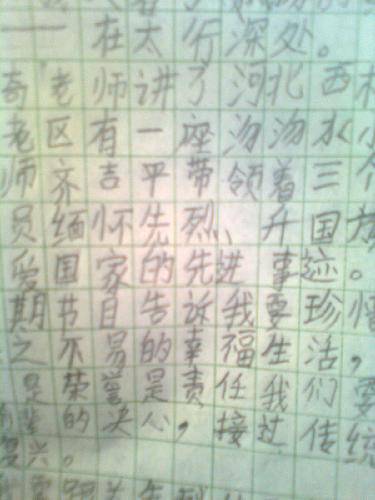 一在太行深处。
奇老师讲了河北西
老区有一座沕沕水小
师齐吉平带领着三个
员缅怀先烈、升国旗
爱国家的先进事迹。
期节目告诉我要珍惜
之不易的幸福生活,
是荣誉是责任我们要
的决心,接过传统
兴。